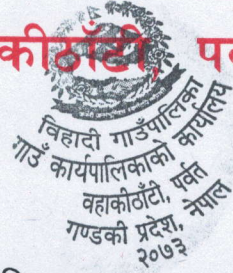 कीठाँटी, पर्
विहादी गाउँपालिका
गाउँ कार्यपालिकाको कार्यालय
वहाकीठाँटी, पर्वत
गण्डकी प्रदेश, नेपाल
२०७३